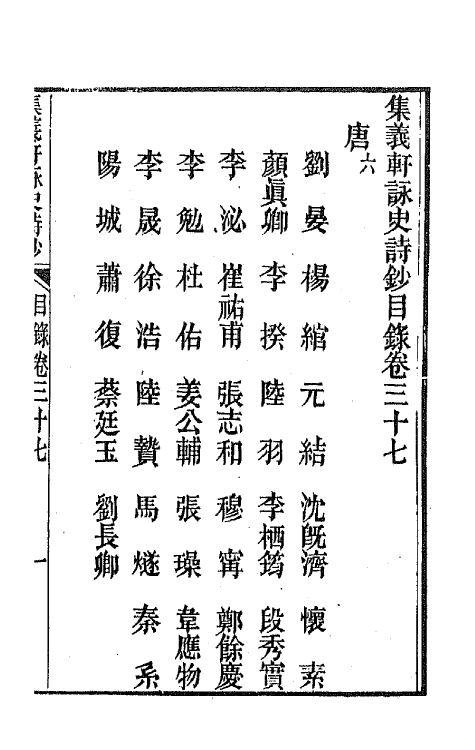 集義軒詠史詩鈔目錄卷三十七
唐六
劉晏 楊綰 元結 沈旣濟 懷素
顏眞卿 李揆 陸羽 李栖筠 段秀實
李泌 崔祐甫 張志和 穆寧 鄭餘慶
李勉 杜佑 姜公輔 張璪 韋應物
李晟 徐浩 陸贄 馬燧 秦系
陽城 蕭復 蔡廷玉 劉長卿
集義軒詠史詩鈔 目錄卷三十七 一